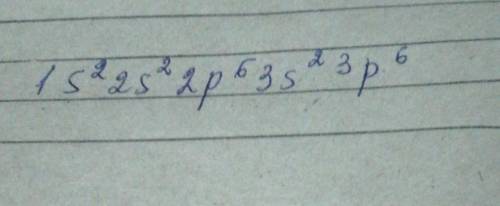 1s²2s²2p⁶3s²3p⁶